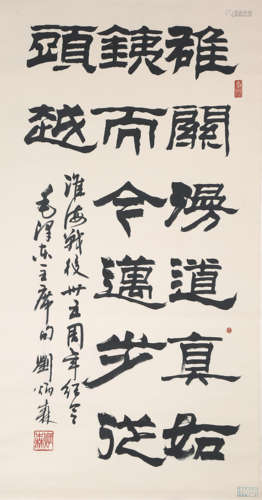 雄關漫道真如
銕而今邁步從
頭越
淮海戰役卅五周年纪念
毛澤东主席句 劉炳森